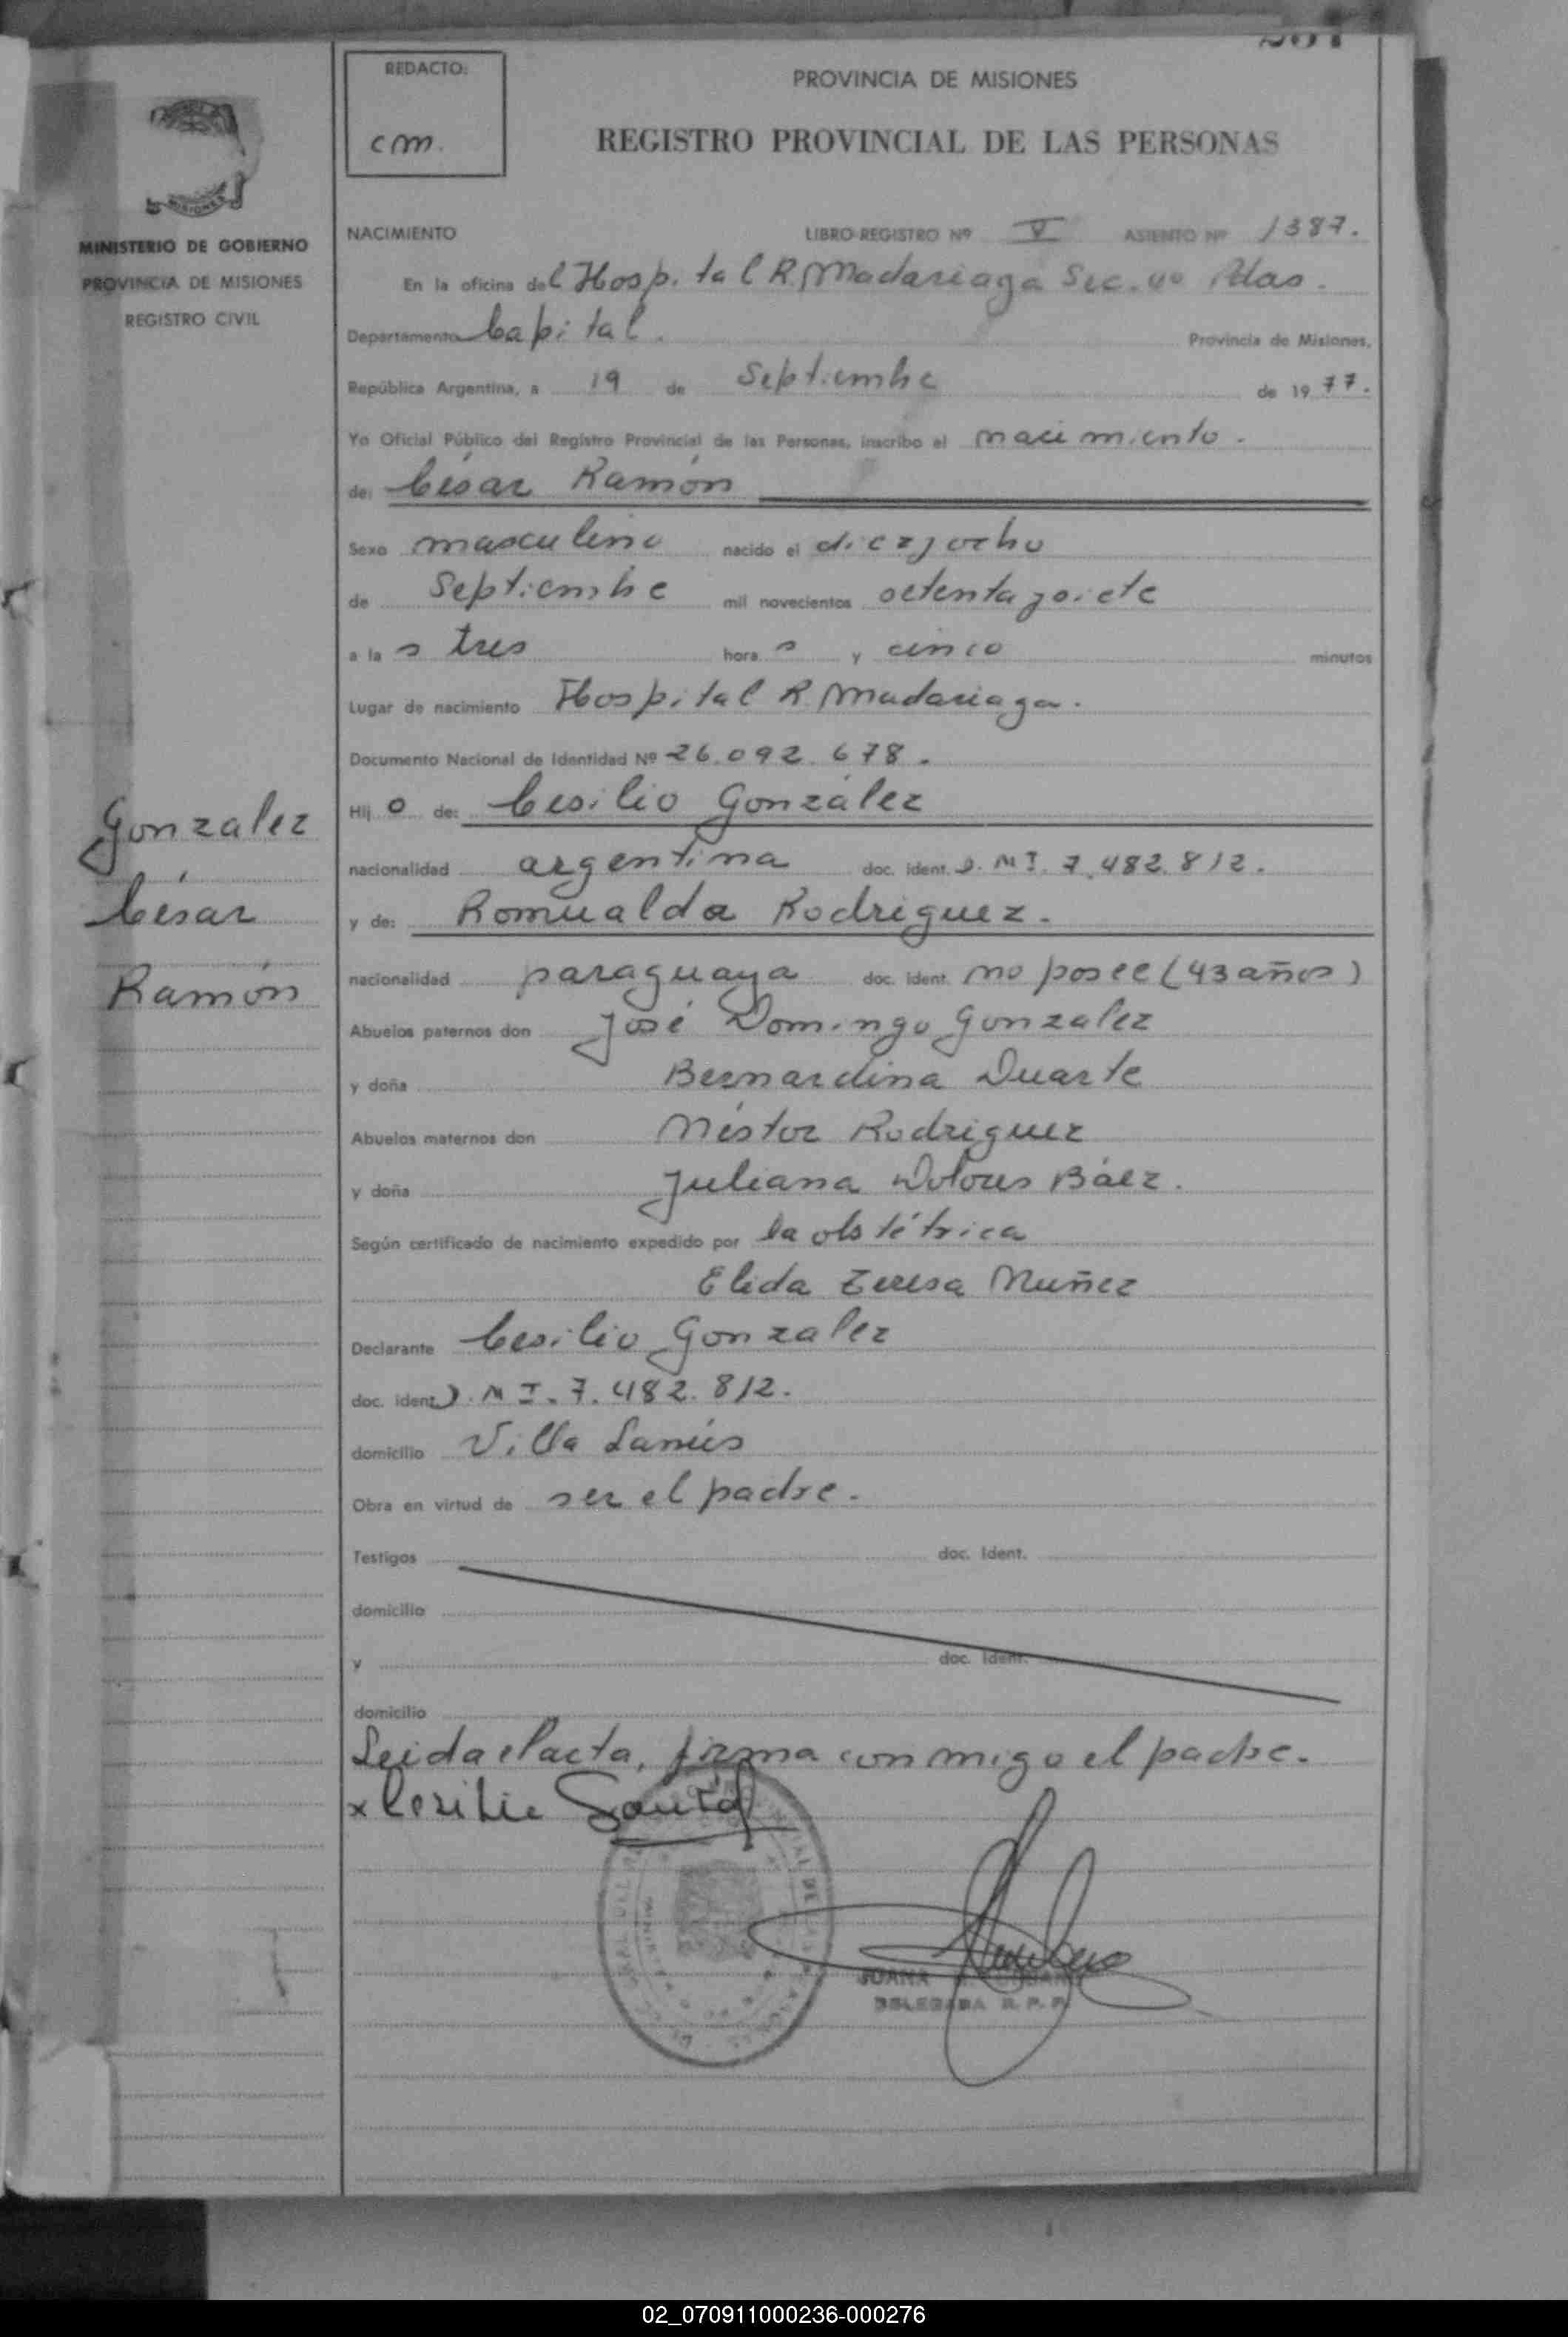 REDACTO:
cm.
PROVINCIA DE MISIONES
REGISTRO PROVINCIAL DE LAS PERSONAS
MISIONES
MINISTERIO DE GOBIERNO
PROVINCIA DE MISIONES
REGISTRO CIVIL
NACIMIENTO LIBRO-REGISTRO Nº V ASIENTO Nº 1387.
En la oficina del Hospital R. Madariaga Sec. 4º Pdas.
Departamento Capital. Provincia de Misiones,
República Argentina, a 19 de Septiembre de 1977.
Yo Oficial Público del Registro Provincial de las Personas, inscribo el nacimiento.
de: César Ramón
Sexo masculino nacido el diezyocho
de Septiembre mil novecientos setentaysiete
a las tres horas y cinco minutos
Lugar de nacimiento Hospital R. Madariaga.
Documento Nacional de Identidad Nº 26.092.678.
Hijo de: Cesilio González
nacionalidad argentina doc. ident. D.M.I. 7.482.812.
y de: Romualda Rodriguez.
nacionalidad paraguaya doc. ident. no posee (43 años)
Gonzalez
César
Ramón
Abuelos paternos don José Domingo Gonzalez
y doña Bernardina Duarte
Abuelos maternos don Néstor Rodriguez
y doña Juliana Dolores Báez.
Según certificado de nacimiento expedido por la obstétrica
Elida Teresa Nuñez
Declarante Cesilio Gonzalez
doc. ident. D.M.I. 7.482.812.
domicilio Villa Lanús
Obra en virtud de ser el padre.
Testigos doc. Ident.
domicilio
y doc. Ident.
domicilio
Leida el acta, firma conmigo el padre.
x Cesilio
JUANA
DELEGADA R. P. P.
02_070911000236-000276